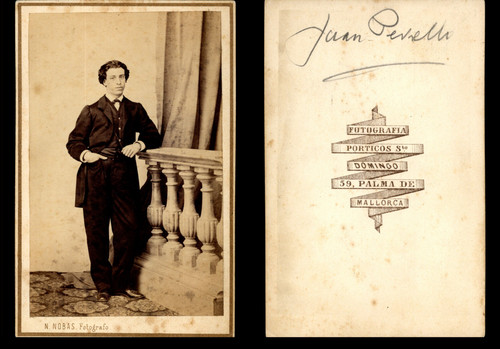 N. NOBAS. Fotógrafo
Juan
FOTOGRAFIA
PORTICOS Sto
DOMINGO
59, PALMA DE
MALLORCA